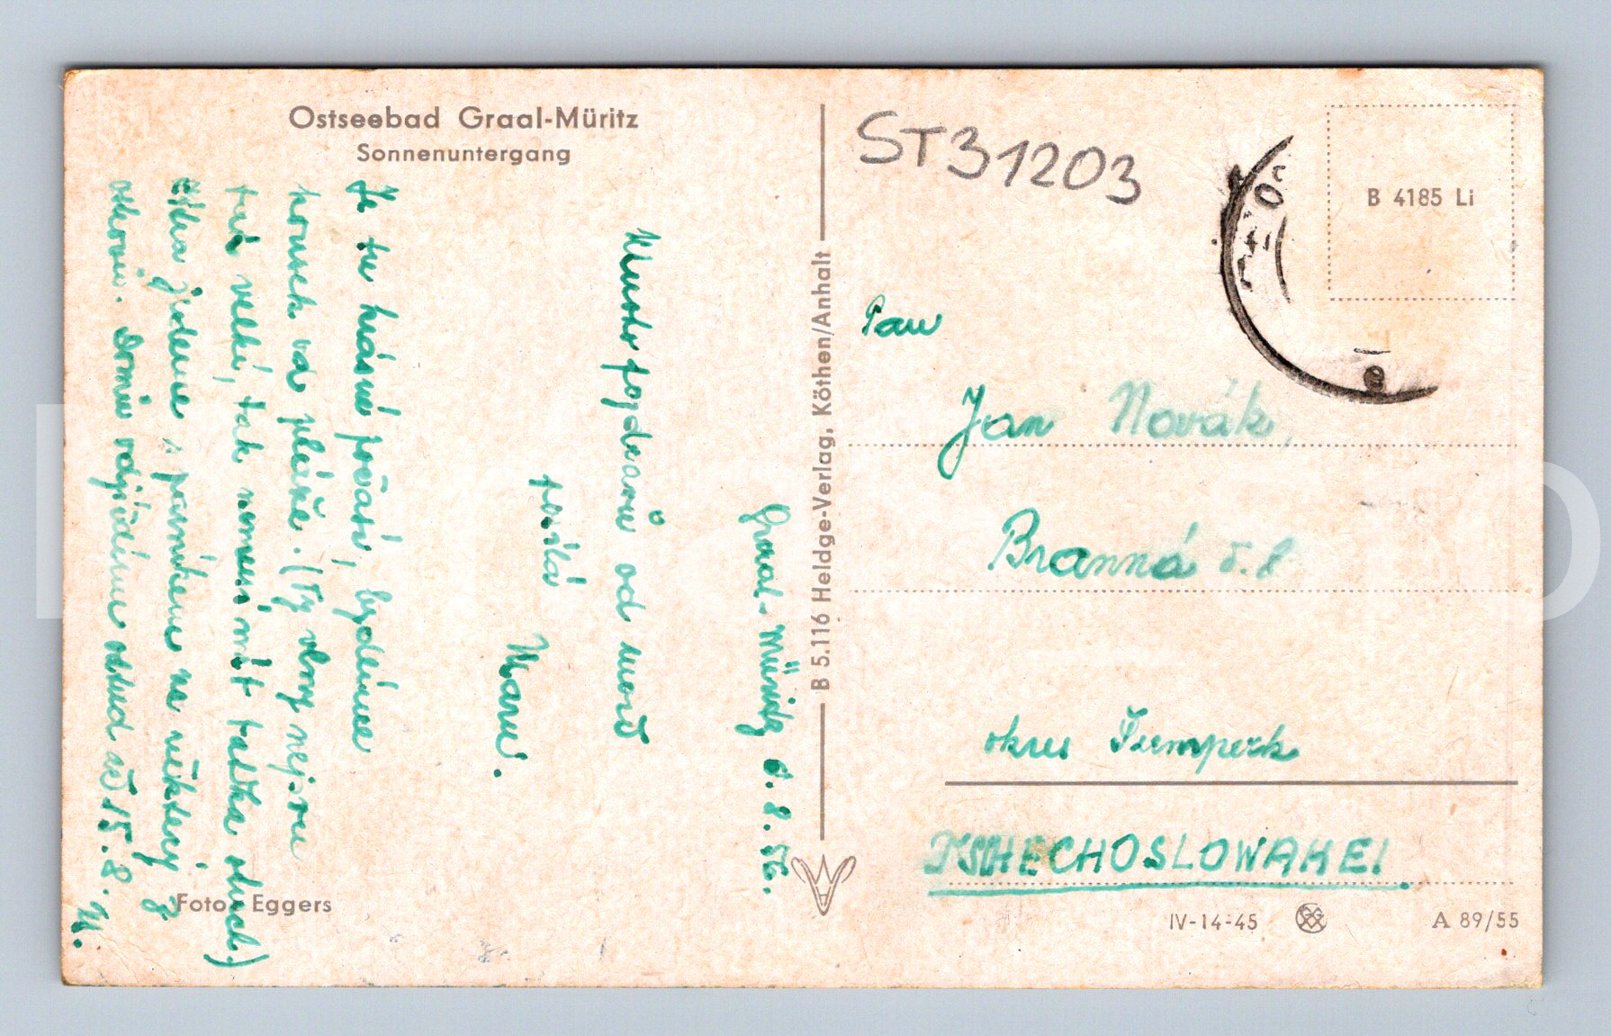 Ostseebad Graal-Müritz
Sonnenuntergang
Graal-Müritz 6.8.56.
Mnoho pozdravů od moře
posílá
Je tu krásné počasí, bydlíme
kousek od pláže. (Ty vlny nejsou
tak velké, tak nemusí mít taťka strach)
jedeme s parníkem na některý z
ostrovů. Domů odjíždíme odtud až 15.8.
Foto: Eggers
B 5.116 Heldge-Verlag, Köthen/Anhalt
ST31203
B 4185 Li
Pan
Jan Novák,
Branná č.8
okres Šumperk
TSCHECHOSLOWAKEI.
IV-14-45
A 89/55